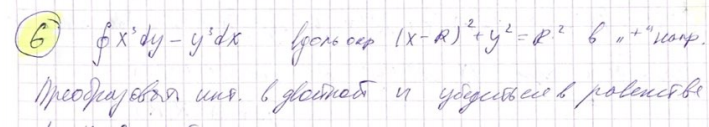 6 ∮ x³dy – y³dx вдоль окр (x-R)²+y²=R² в „+“ напр.
Преобразовать инт. в двойной и убедиться в равенстве